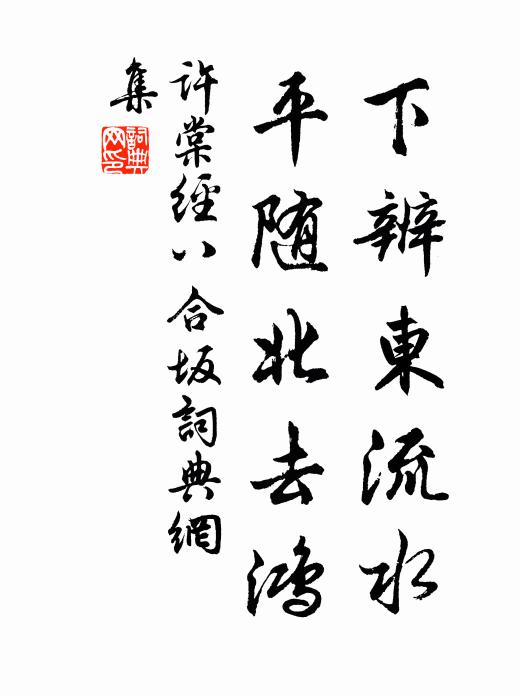 下辨東流水
平随北去鸿
許棠經八合坂詞典網
集
詞典
网印